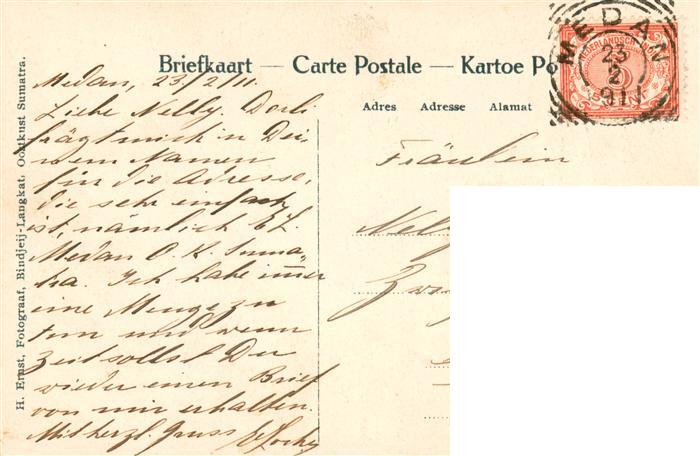 H. Ernst, Fotograaf, Bindjeij-Langkat. Oostkust Sumatra.
Briefkaart — Carte Postale — Kartoe Po
Adres Adresse Alamat
MEDAN
23
2
911
NEDERLANDSCH-INDIË
5
CENT
Medan, 23/2/11.
Liebe Nelly. Dorli
frägt mich in Dei-
nem Namen
für die Adresse,
die sehr einfach
ist, nämlich
Medan O. K. Suma-
tra. Ich habe immer
eine Menge zu
tun und wenn
Zeit sollst Du
wieder einen Brief
von mir erhalten.
Mit herzl. Gruss
Fräulein
Nelly